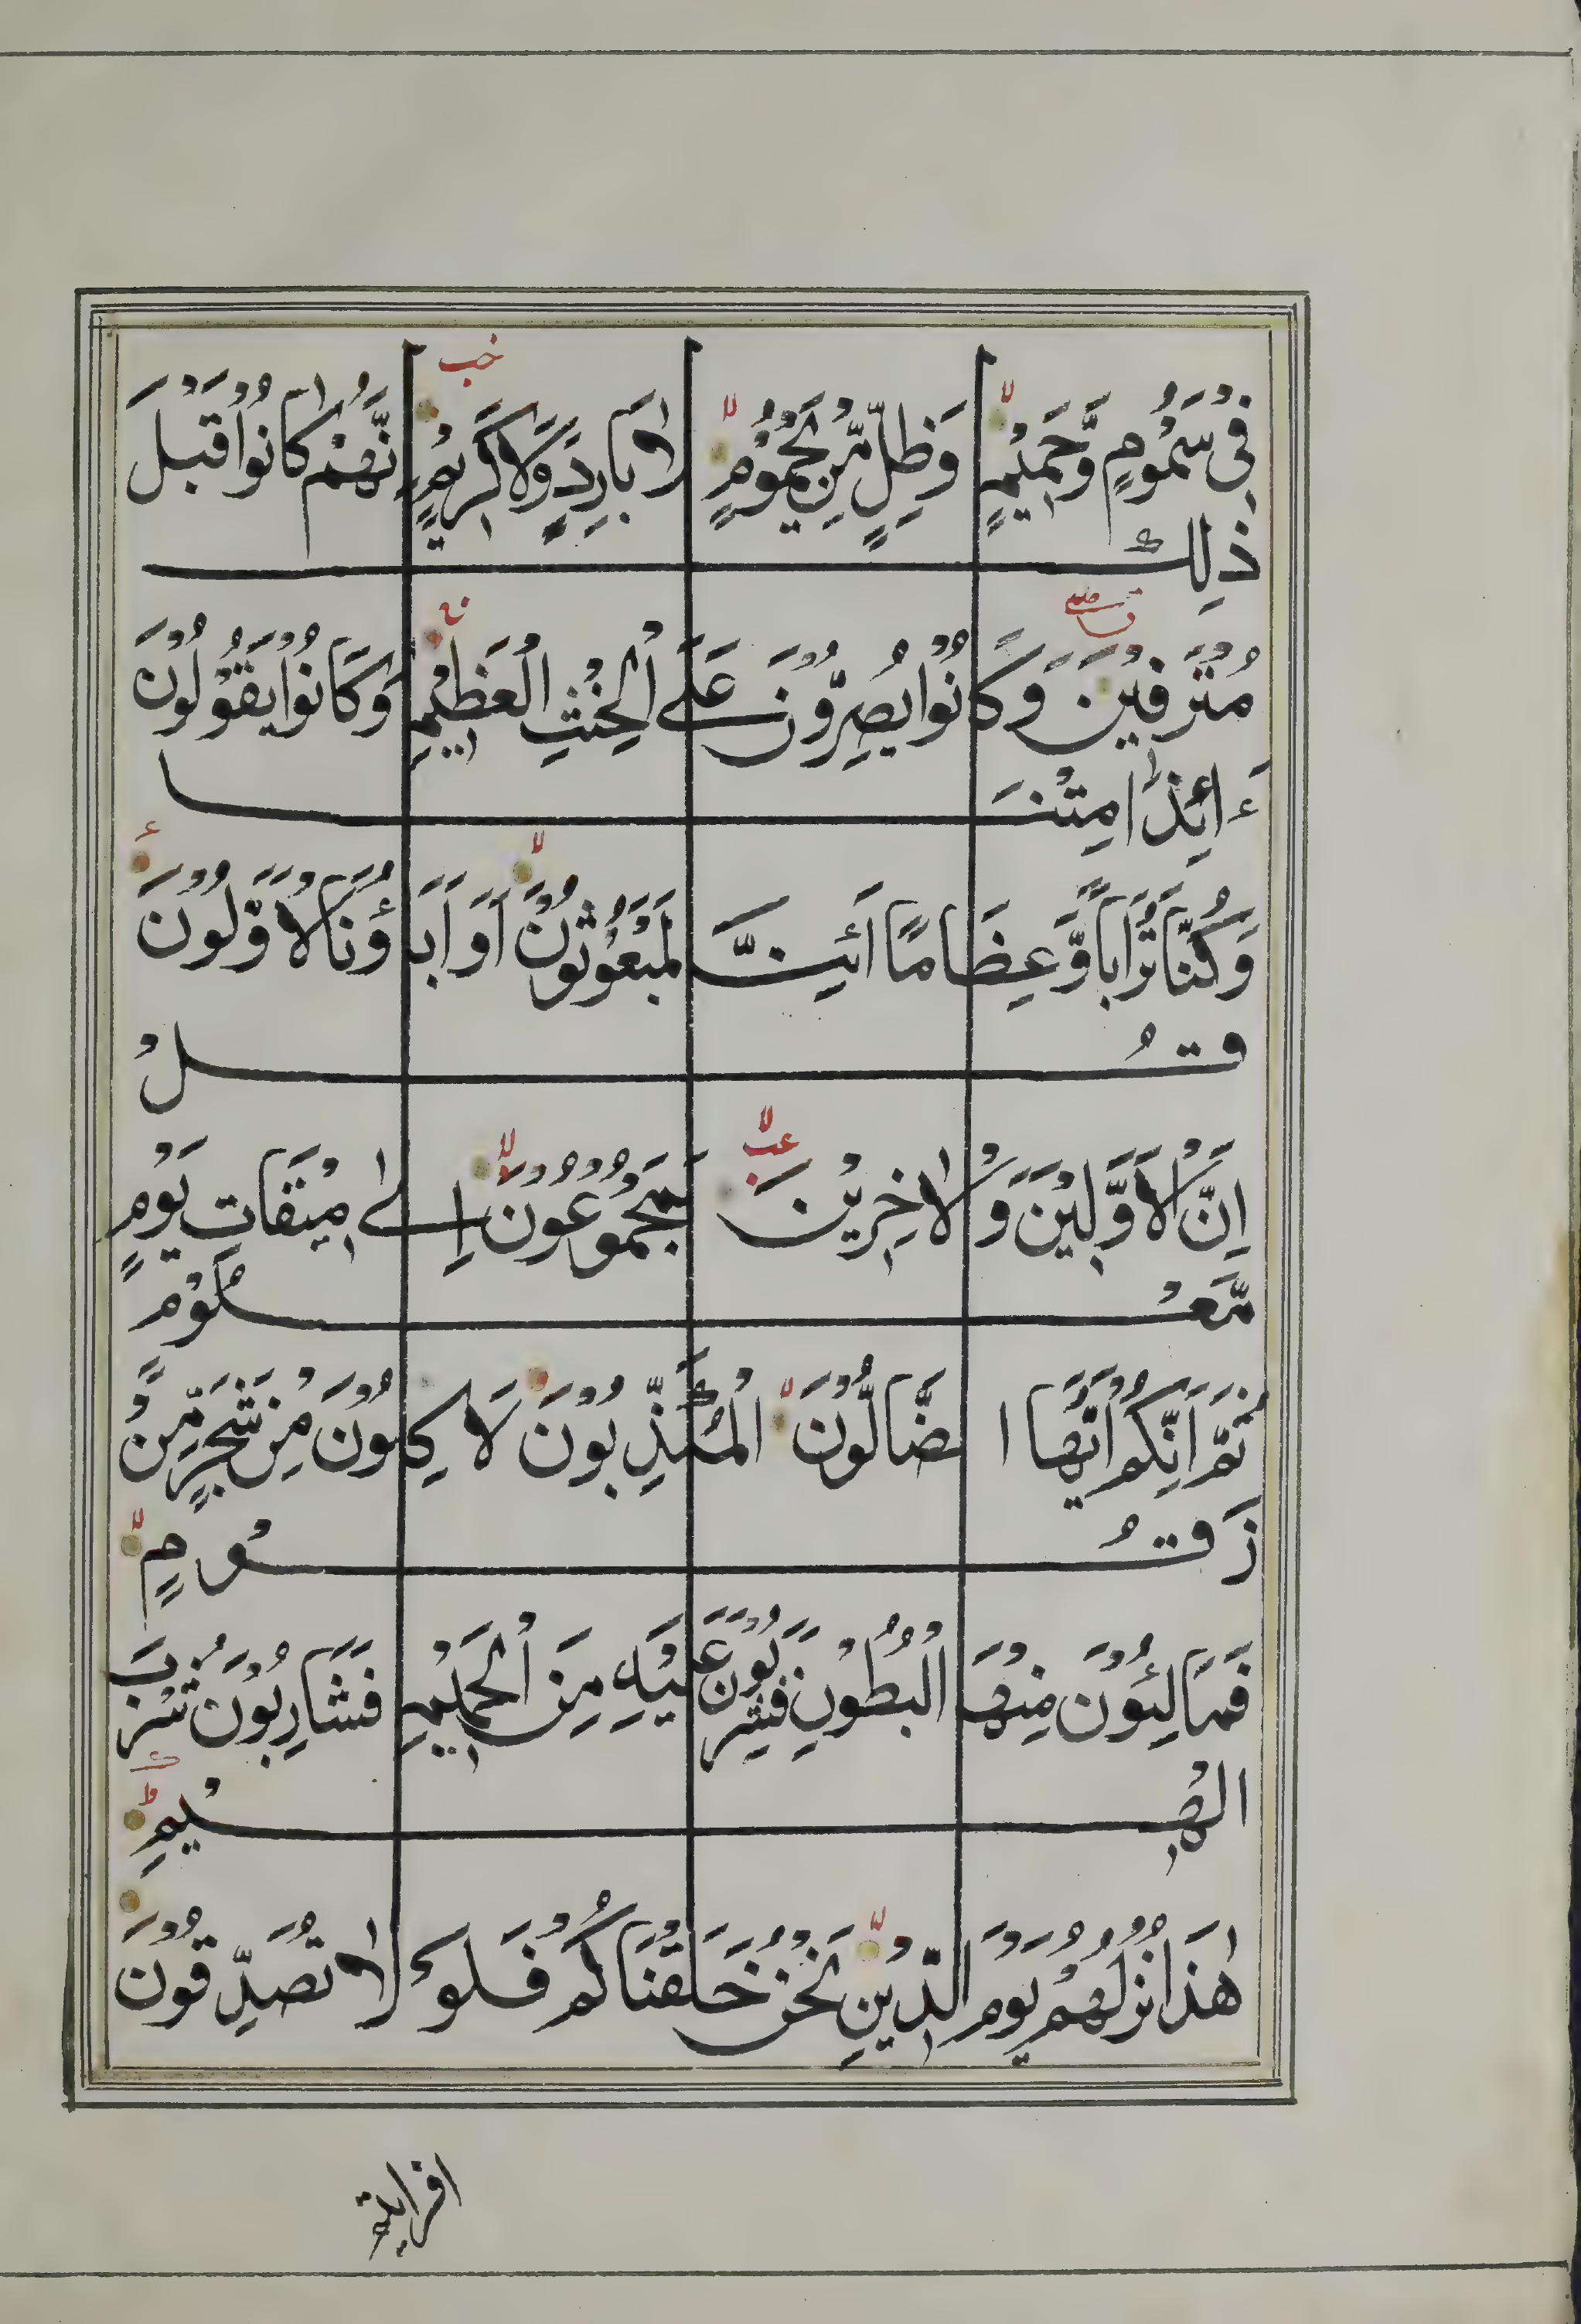 فِيْ سَمُوْمٍ وَّحَمِيْمٍ وَظِلٍّ مِّنْ يَحْمُوْمٍ لَا بَارِدٍ وَّلَا كَرِيْمٍ اِنَّهُمْ كَانُوْا قَبْلَ
ذٰلِكَ
مُتْرَفِيْنَ وَكَانُوْا يُصِرُّوْنَ عَلَى الْحِنْثِ الْعَظِيْمِ وَكَانُوْا يَقُوْلُوْنَ
ءَاِئذَا مِتْنَا
وَكُنَّا تُرَاباً وَّعِظَامًا اَئِنَّا لَمَبْعُوْثُوْنَ اَوَاٰبَاؤُنَا الْاَوَّلُوْنَ
قُلْ
اِنَّ الْاَوَّلِيْنَ وَالْاٰخِرِيْنَ لَمَجْمُوْعُوْنَ اِلٰى مِيْقَاتِ يَوْمٍ
مَّعْلُوْمٍ
ثُمَّ اِنَّكُمْ اَيُّهَا الضَّالُّوْنَ الْمُكَذِّبُوْنَ لَاٰكِلُوْنَ مِنْ شَجَرٍ مِّنْ
زَقُّوْمٍ
فَمَالِئُوْنَ مِنْهَا الْبُطُوْنِ فَشٰرِبُوْنَ عَلَيْهِ مِنَ الْحَمِيْمِ فَشَارِبُوْنَ شُرْبَ
الْهِيْمِ
هٰذَا نُزُلُهُمْ يَوْمَ الدِّيْنِ نَحْنُ خَلَقْنَاكُمْ فَلَوْلَا تُصَدِّقُوْنَ
افرايتم